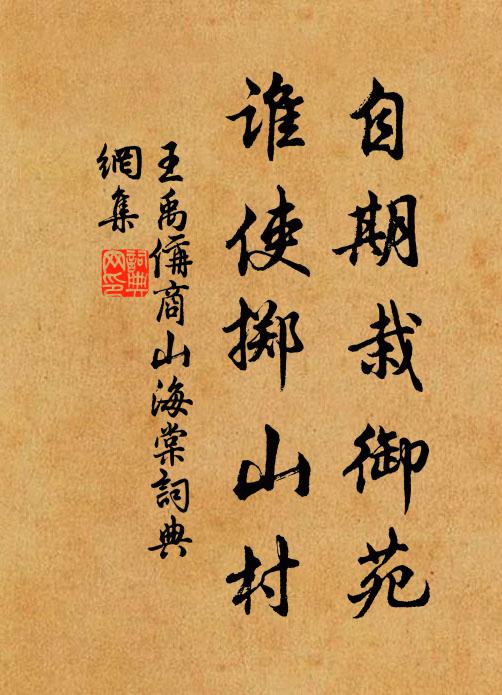 自期栽御苑
谁使掷山村
王禹偁商山海棠詞典
網集
詞典网印